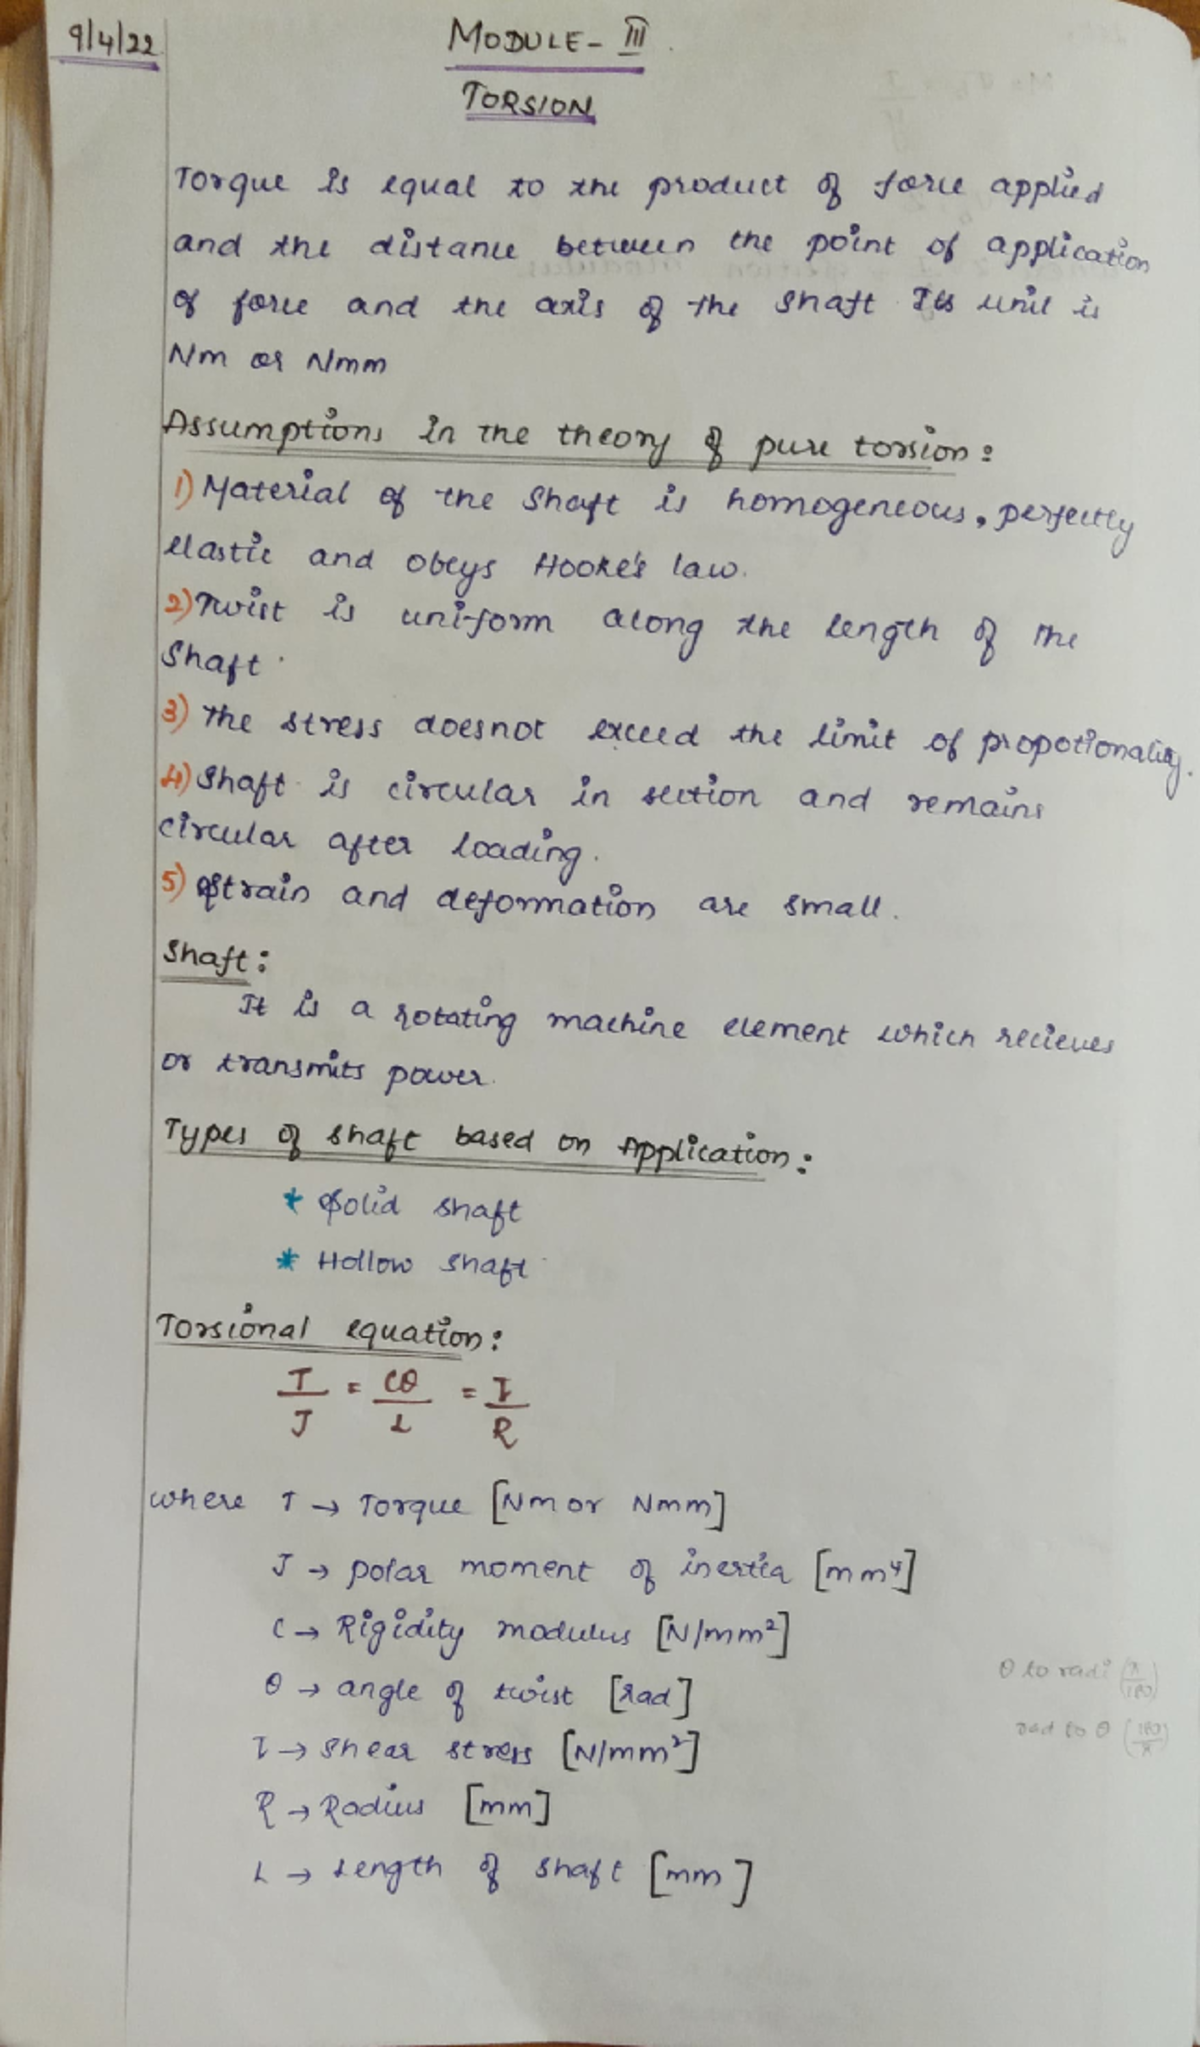 9/4/22
MODULE - III
TORSION
Torque is equal to the product of force applied
and the distance between the point of application
of force and the axis of the shaft Its unit is
Nm or Nmm
Assumptions in the theory of pure torsion:
1) Material of the shaft is homogeneous, perfectly
elastic and obeys Hooke's law.
2) Twist is uniform along the length of the
shaft.
3) The stress doesnot exceed the limit of propotionality.
4) Shaft is circular in section and remains
circular after loading.
5) Strain and deformation are small.
Shaft:
It is a rotating machine element which recieves
or transmits power.
Types of shaft based on Application:
* Solid shaft
* Hollow shaft
Torsional equation:
T/J = Cθ/L = τ/R
where T → Torque [Nm or Nmm]
J → polar moment of inertia [mm⁴]
C → Rigidity modulus [N/mm²]
θ → angle of twist [rad]
θ to radi (π/180)
τ → shear stress [N/mm²]
rad to θ (180/π)
R → Radius [mm]
L → Length of shaft [mm]